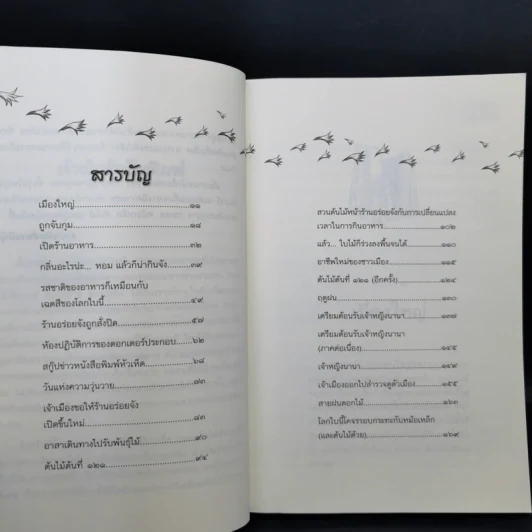 สารบัญ
เมืองใหญ่..........๑๑
ถูกจับกุม..........๑๘
เปิดร้านอาหาร..........๓๒
กลิ่นอะไรน่ะ... หอม แล้วก็น่ากินจัง..........๓๙
รสชาติของอาหารก็เหมือนกับ
เฉดสีของโลกใบนี้..........๔๙
ร้านอร่อยจังถูกสั่งปิด..........๕๗
ห้องปฏิบัติการของดอกเตอร์ประกอบ..........๖๒
สกู๊ปข่าวหนังสือพิมพ์หัวเห็ด..........๖๘
วันแห่งความวุ่นวาย..........๗๓
เจ้าเมืองขอให้ร้านอร่อยจัง
เปิดขึ้นใหม่..........๘๓
อาสาเดินทางไปรับพันธุ์ไม้..........๙๐
ต้นไม้ต้นที่ ๑๒๑..........๙๔
สวนต้นไม้หน้าร้านอร่อยจังกับการเปลี่ยนแปลง
เวลาในการกินอาหาร..........๑๐๒
แล้ว... ใบไม้ก็ร่วงลงพื้นจนได้..........๑๑๐
อาชีพใหม่ของชาวเมือง..........๑๑๕
ต้นไม้ต้นที่ ๑๒๑ (อีกครั้ง)..........๑๒๔
ฤดูฝน..........๑๓๐
เตรียมต้อนรับเจ้าหญิงนานา..........๑๓๗
เตรียมต้อนรับเจ้าหญิงนานา
(ภาคต่อเนื่อง)..........๑๔๕
เจ้าหญิงนานา..........๑๔๙
เจ้าเมืองออกไปสำรวจดูตัวเมือง..........๑๕๕
สายฝนดอกไม้..........๑๖๓
โลกใบนี้โคจรรอบกระทะกับหม้อเหล็ก
(และต้นไม้ด้วย)..........๑๖๙